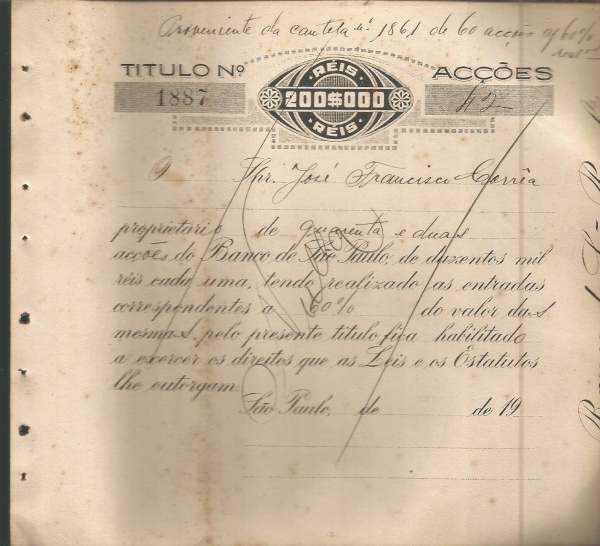 Proveniente da cautela nº 1861 de 60 acções c/ 60%
real
TITULO Nº
RÉIS
200$000
RÉIS
ACÇÕES
1887
42
O Snr. José Francisco Corrêa
proprietario de quarenta e duas
acções do Banco de São Paulo, de duzentos mil
réis cada uma, tendo realizado as entradas
correspondentes a 60% do valor das
mesmas, pelo presente titulo fica habilitado
a exercer os direitos que as Leis e os Estatutos
lhe outorgam.
São Paulo, de de 19